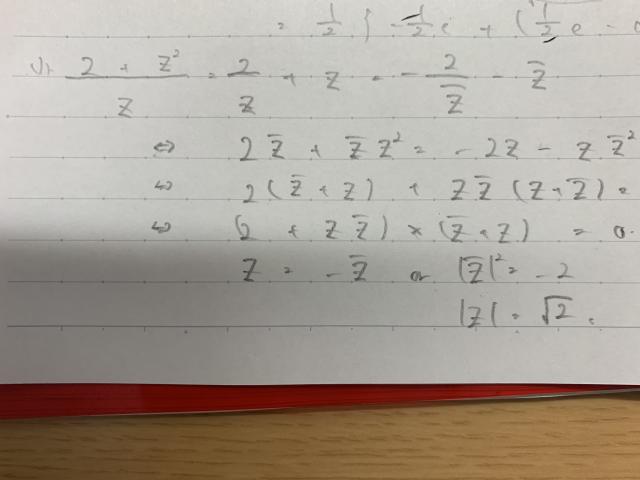 = 1/2 { -1/2 e + (1/2 e -
(2 + z²)/z = 2/z + z = -2/z̄ - z̄
⇔ 2z̄ + z̄z² = -2z - zz̄²
⇔ 2(z̄ + z) + zz̄(z + z̄) =
⇔ (2 + zz̄) × (z̄ + z) = 0.
z = -z̄ or |z̄|² = -2
|z| = √2.